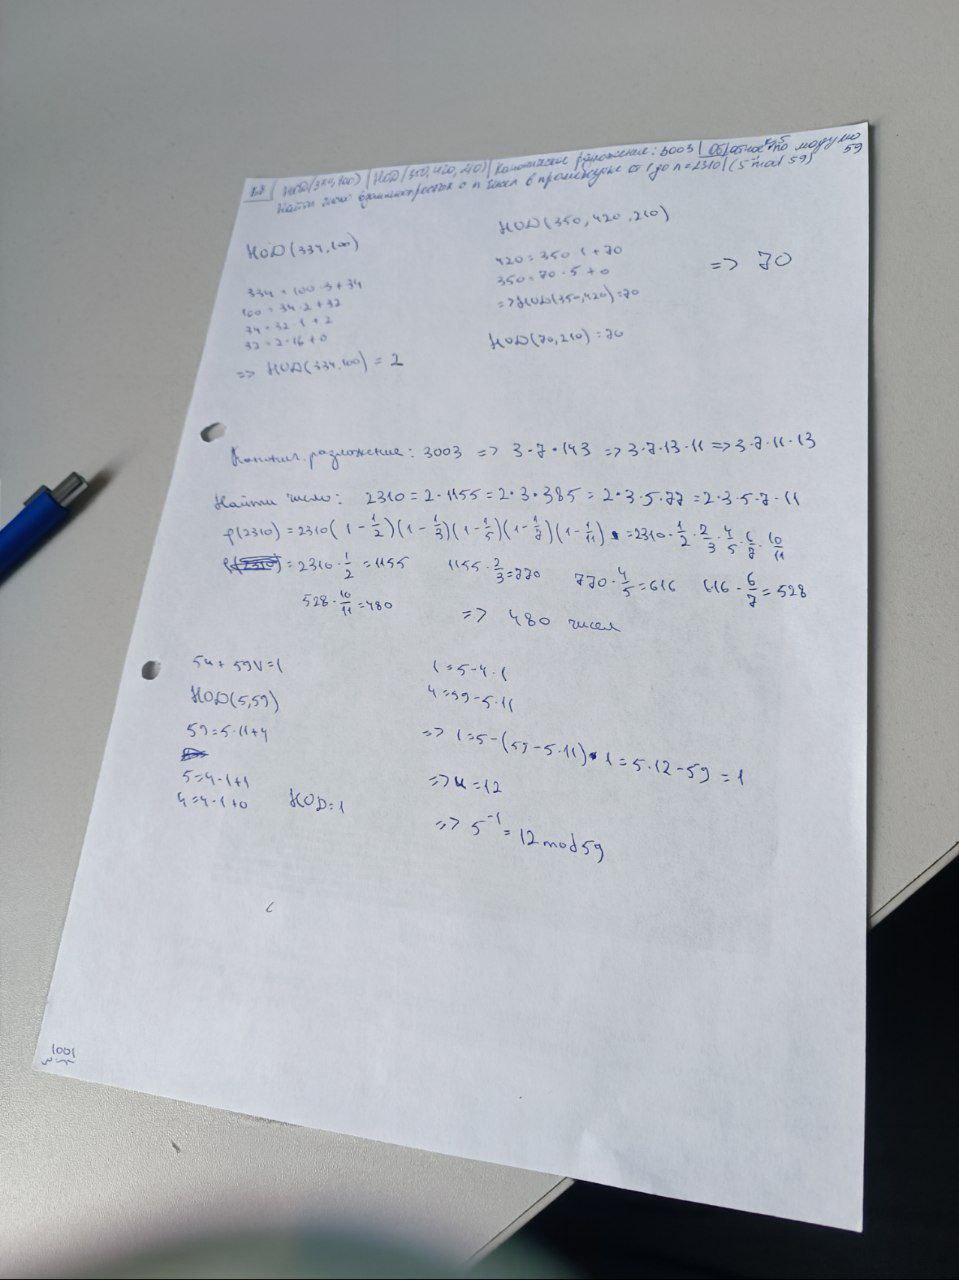 НОД(334,100) | НОД(350,420,210) | Каноническое разложение: 3003 | Обратное к 5 по модулю 59
Найти число взаимнопростых с n чисел в промежутке от 1 до n=2310 | (5⁻¹ mod 59)
НОД(334,100)
334=100·3+34
100=34·2+32
34=32·1+2
32=2·16+0
=> НОД(334,100)=2
НОД(350,420,210)
420=350·1+70
350=70·5+0
=> НОД(350,420)=70
НОД(70,210)=70
=> 70
Канонич. разложение: 3003 => 3·7·143 => 3·7·13·11 => 3·7·11·13
Найти число: 2310=2·1155=2·3·385=2·3·5·77=2·3·5·7·11
φ(2310)=2310(1-1/2)(1-1/3)(1-1/5)(1-1/7)(1-1/11)=2310·1/2·2/3·4/5·6/7·10/11
=2310·1/2=1155 1155·2/3=770 770·4/5=616 616·6/7=528
528·10/11=480 => 480 чисел
5u+59v=1
НОД(5,59)
59=5·11+4
5=4·1+1
4=4·1+0 НОД=1
1=5-4·1
4=59-5·11
=> 1=5-(59-5·11)·1=5·12-59=1
=> u=12
=> 5⁻¹=12mod59
1001